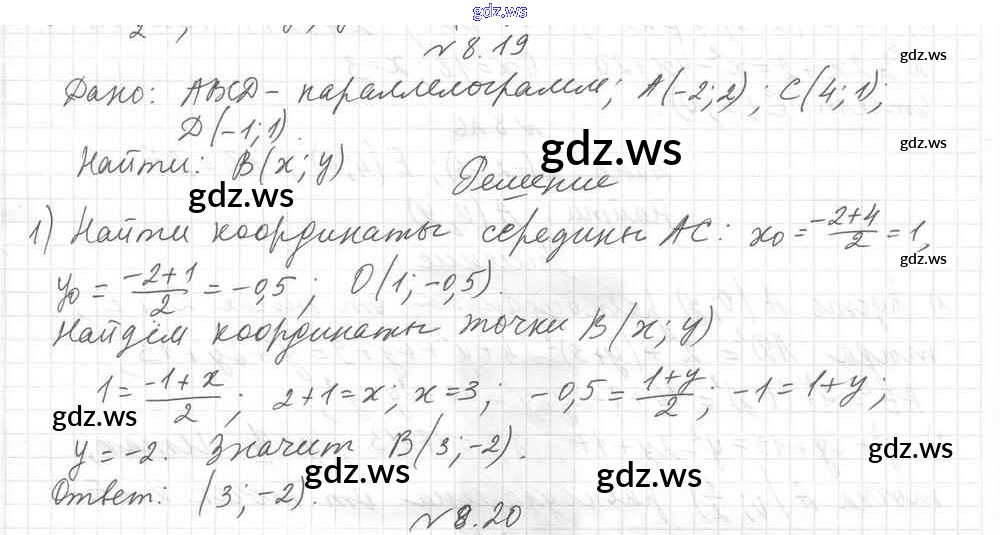 gdz.ws
№ 8.19
gdz.ws
Дано: ABCD - параллелограмм; A(-2; 2); C(4; 1);
D(-1; 1).
gdz.ws
gdz.ws
Найти: B(x; y)
gdz.ws
Решение
1) Найти координаты середины AC: x₀ = (-2+4)/2 = 1,
gdz.ws
y₀ = (-2+1)/2 = -0,5; O(1; -0,5).
Найдём координаты точки B(x; y)
1 = (-1+x)/2; 2+1=x; x=3; -0,5 = (1+y)/2; -1=1+y;
gdz.ws
y = -2. Значит B(3; -2).
gdz.ws
gdz.ws
gdz.ws
Ответ: (3; -2).
№ 8.20